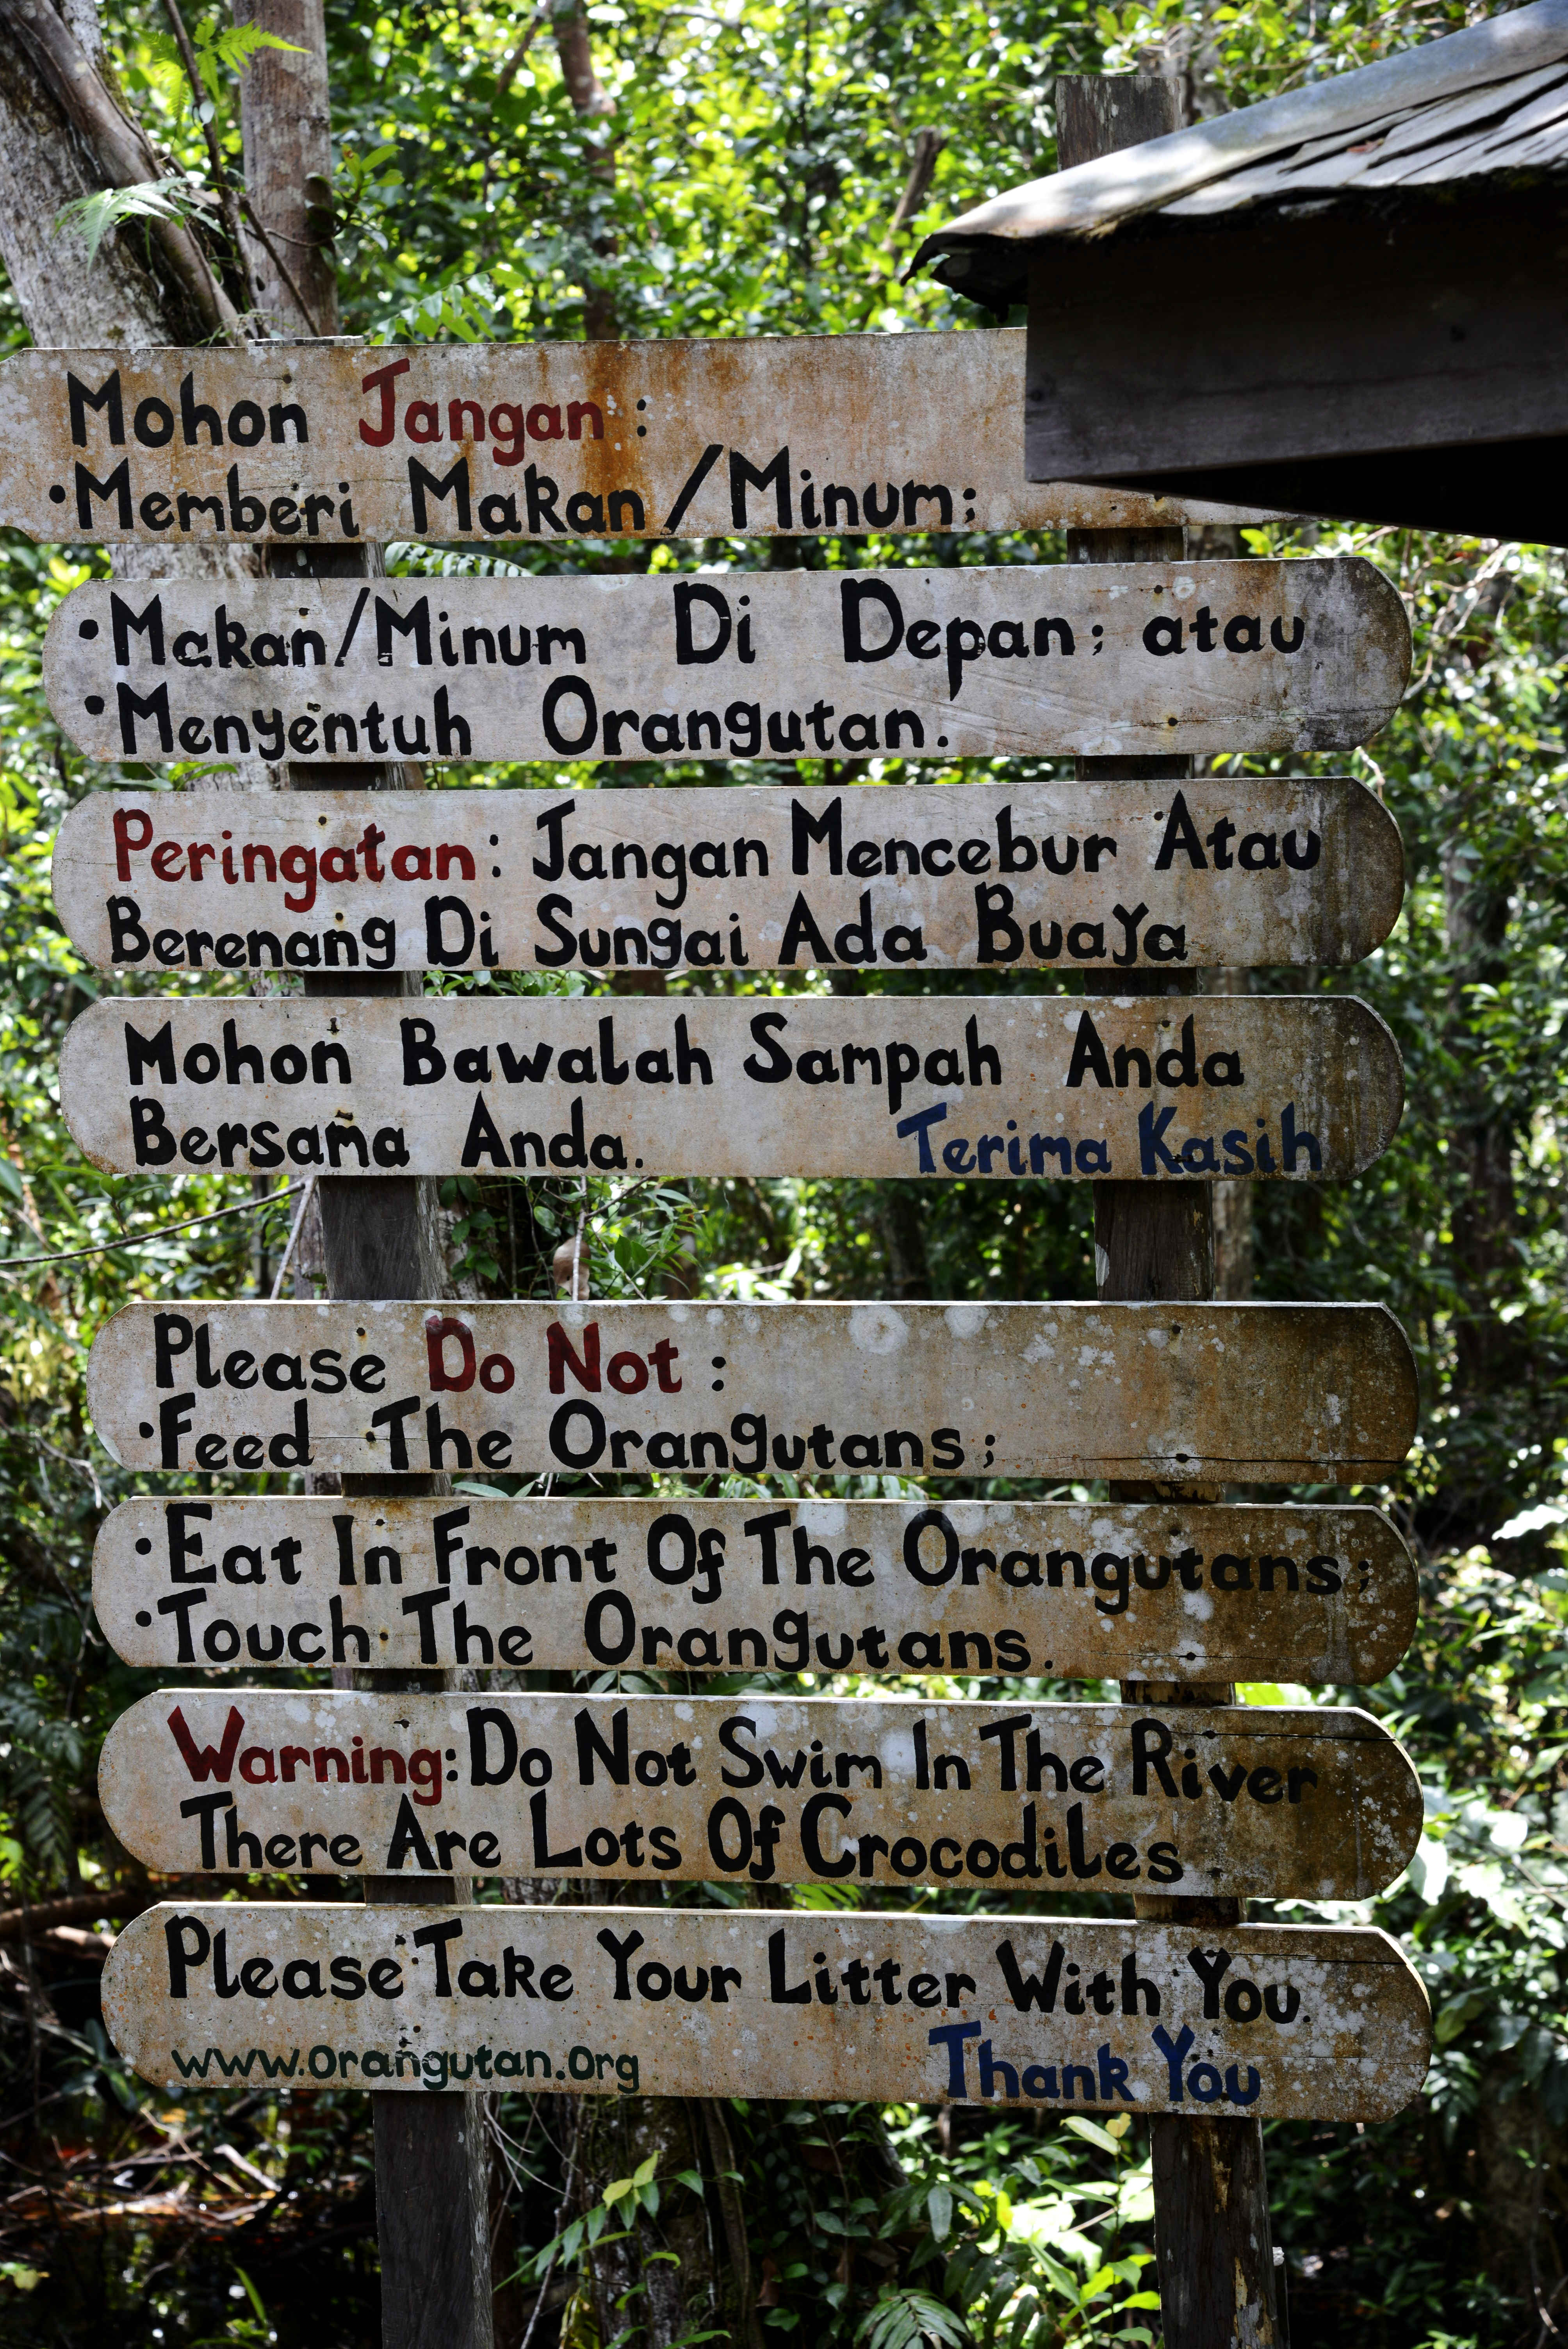 Mohon Jangan :
•Memberi Makan/Minum;
•Makan/Minum Di Depan; atau
•Menyentuh Orangutan.
Peringatan: Jangan Mencebur Atau
Berenang Di Sungai Ada Buaya
Mohon Bawalah Sampah Anda
Bersama Anda. Terima Kasih
Please Do Not :
•Feed The Orangutans;
•Eat In Front Of The Orangutans;
•Touch The Orangutans.
Warning: Do Not Swim In The River
There Are Lots Of Crocodiles
Please Take Your Litter With You.
www.orangutan.org Thank You